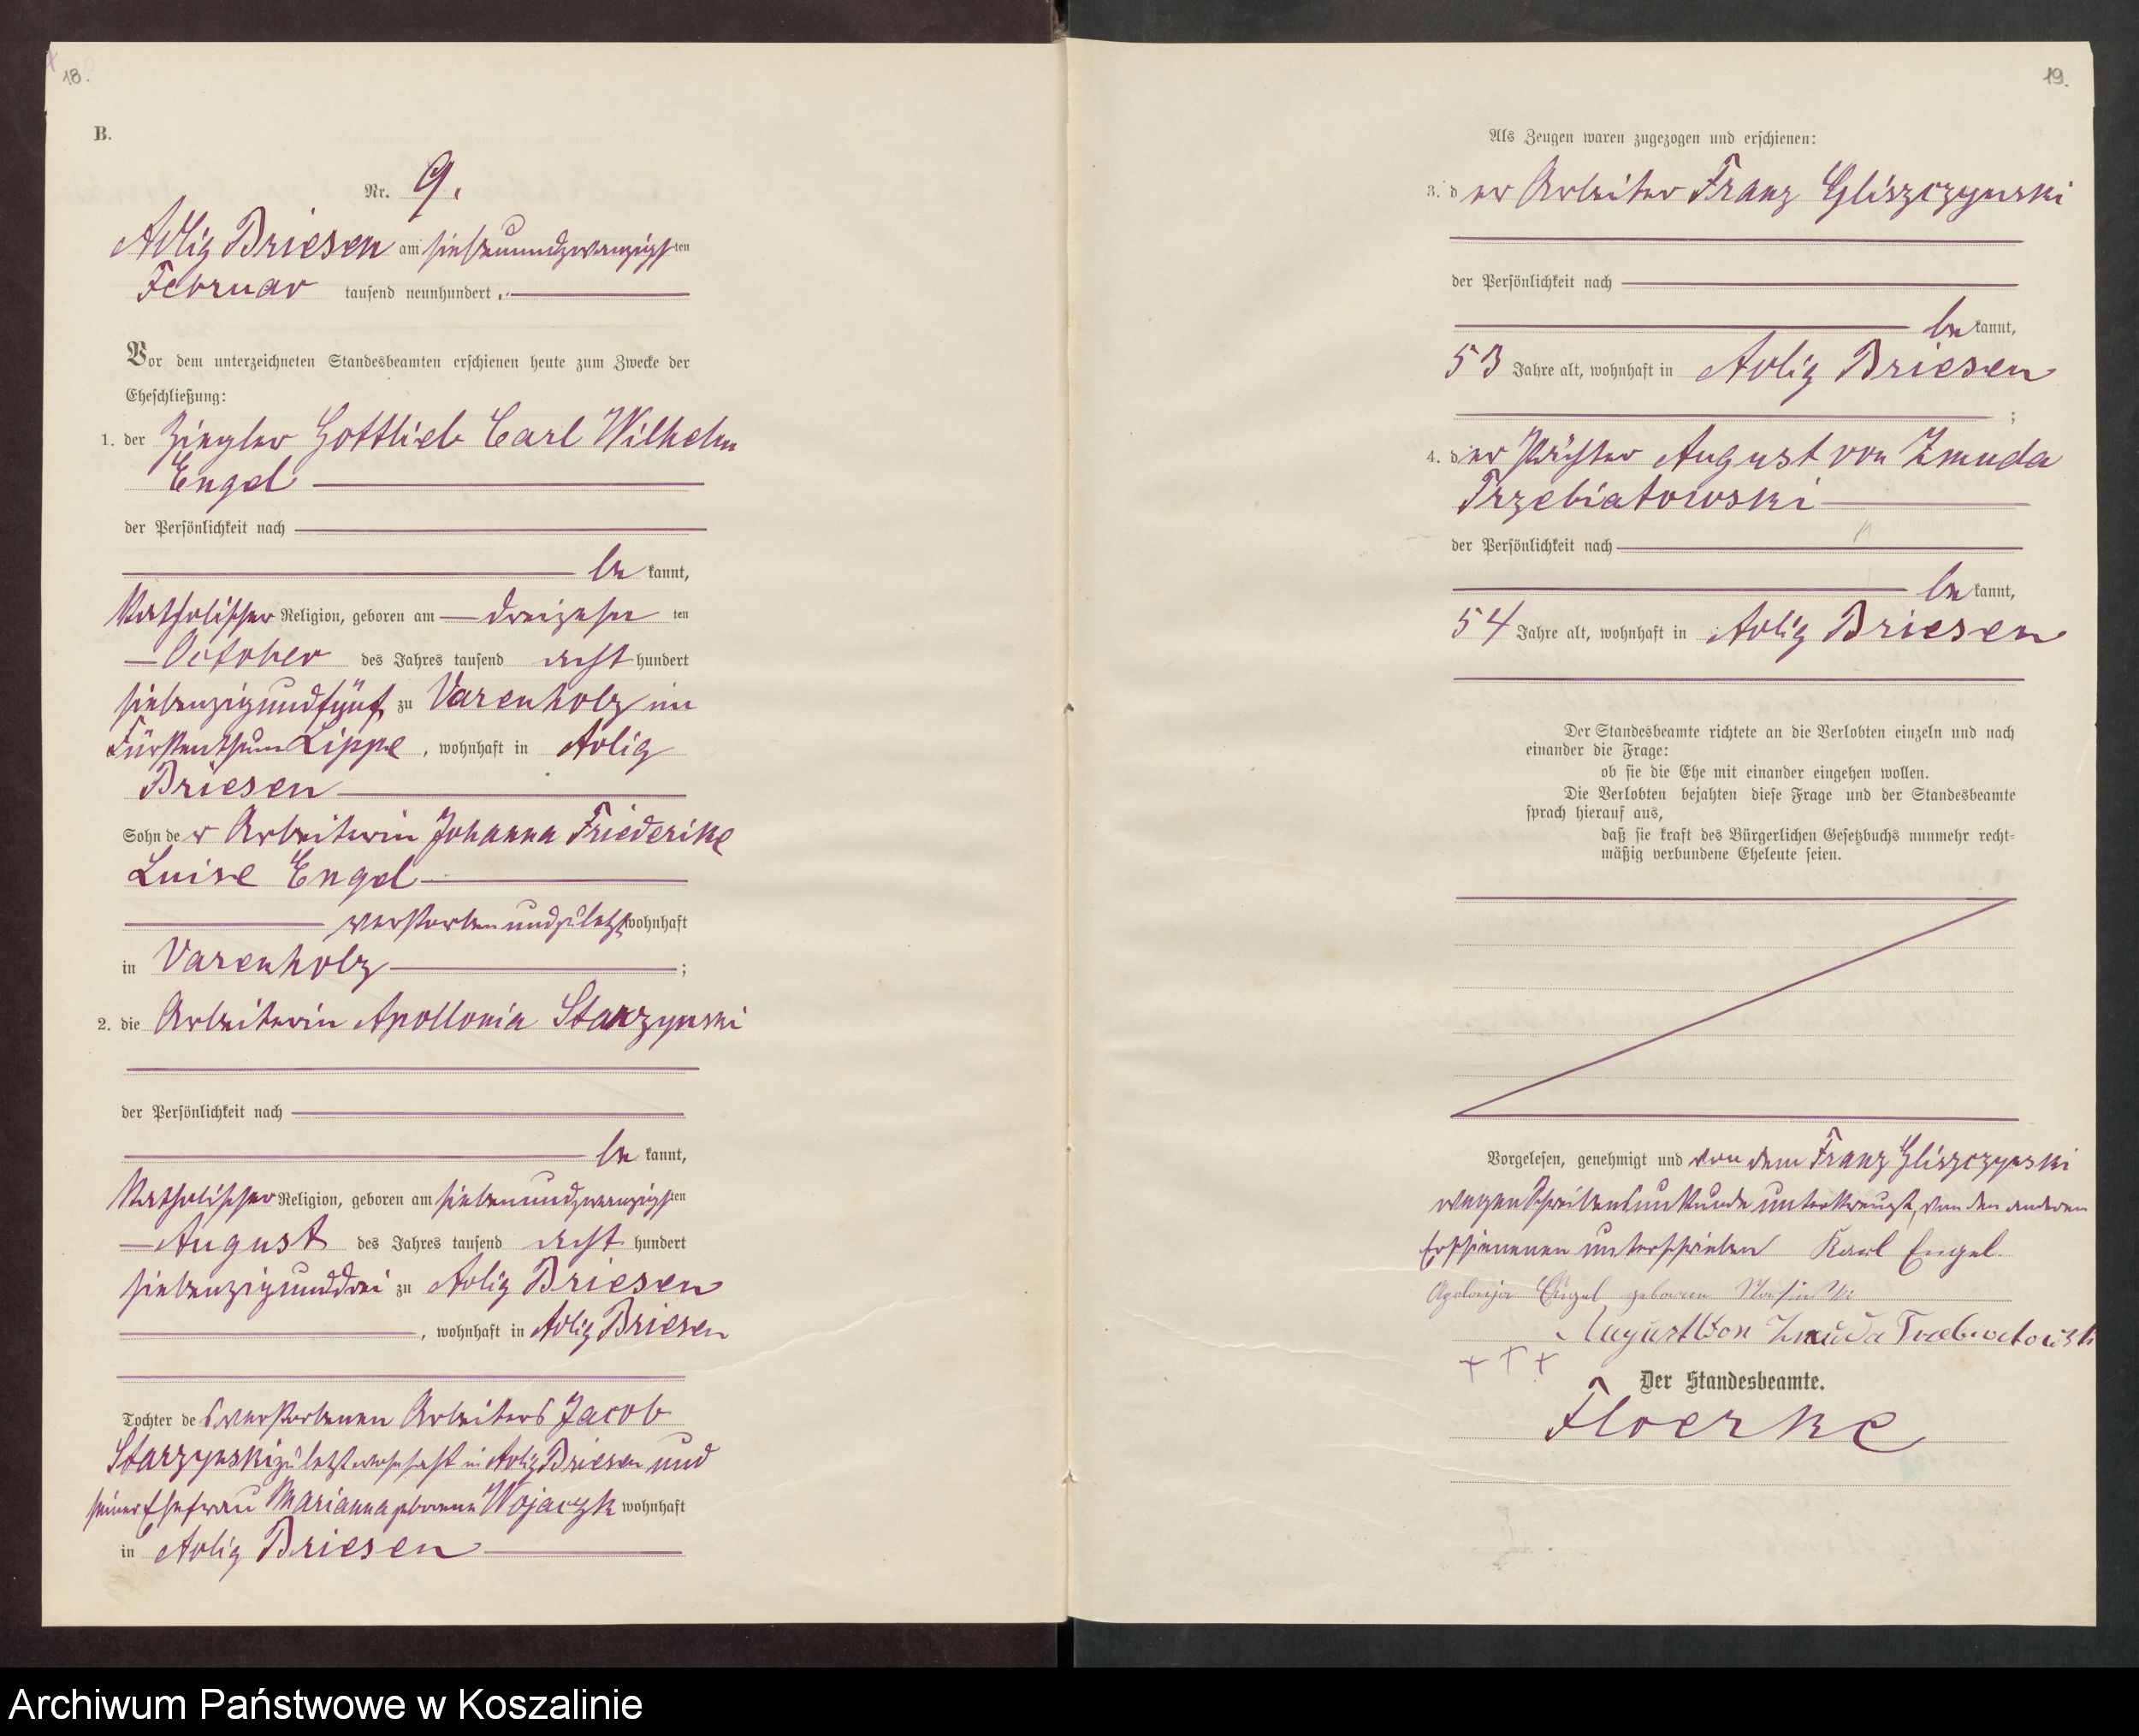 18.
B.
Nr. 9.
Adlig Briesen am siebenundzwanzigsten
Februar tausend neunhundert
Vor dem unterzeichneten Standesbeamten erschienen heute zum Zwecke der
Eheschließung:
1. der Ziegler Gottlieb Carl Wilhelm
Engel
der Persönlichkeit nach
bekannt,
Katholischer Religion, geboren am dreizehnten
October des Jahres tausend achthundert
siebenzigundfünf zu Varenholz im
Fürstenthum Lippe, wohnhaft in Adlig
Briesen
Sohn der Arbeiterin Johanna Friederike
Luise Engel
verstorben und zuletzt wohnhaft
in Varenholz;
2. die Arbeiterin Apollonia Starzynski
der Persönlichkeit nach
bekannt,
Katholischer Religion, geboren am siebenundzwanzigsten
August des Jahres tausend achthundert
siebenzigunddrei zu Adlig Briesen
, wohnhaft in Adlig Briesen
Tochter des verstorbenen Arbeiters Jacob
Starzynski zuletzt wohnhaft in Adlig Briesen und
seiner Ehefrau Marianna geborene Wojaczk wohnhaft
in Adlig Briesen
19.
Als Zeugen waren zugezogen und erschienen:
3. der Arbeiter Franz Gliszczynski
der Persönlichkeit nach
bekannt,
53 Jahre alt, wohnhaft in Adlig Briesen
;
4. der Pächter August von Zmuda
Trzebiatowski
der Persönlichkeit nach
bekannt,
54 Jahre alt, wohnhaft in Adlig Briesen
Der Standesbeamte richtete an die Verlobten einzeln und nach
einander die Frage:
ob sie die Ehe mit einander eingehen wollen.
Die Verlobten bejahten diese Frage und der Standesbeamte
sprach hierauf aus,
daß sie kraft des Bürgerlichen Gesetzbuchs nunmehr recht-
mäßig verbundene Eheleute seien.
Vorgelesen, genehmigt und von dem Franz Gliszczynski
wegen Schreibensunkunde unterkreuzt, von den anderen
Erschienenen unterschrieben Karl Engel.
Apolonja Engel geborene
August Von Zmuda Trzebiatowski
+++
Der Standesbeamte.
Floerke
Archiwum Państwowe w Koszalinie